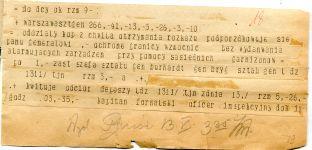 = do dcy ok rzm 9- =
+ warszawasztgen 266,-41,-13,-5,-26,-3,-10
= oddzialy kop z chwila otrzymania rozkazu podporzadkowuje sie
panu generalowi ,- ochrone granicy wzmocnic bez wydawania
alarmujacych zarzadzen przy pomocy sasiednich garnizonow =
p -1- zast szefa sztabu gen burhardt gen bryg sztab gen l dz
131/ tjn rzm 3,- a +
+ kwituje odbior depeszy ldz 131/ tjn zdnia 13/ rzm 5,-26,-
godz 03,-35,- kapitan oficer inspekcyjny dok